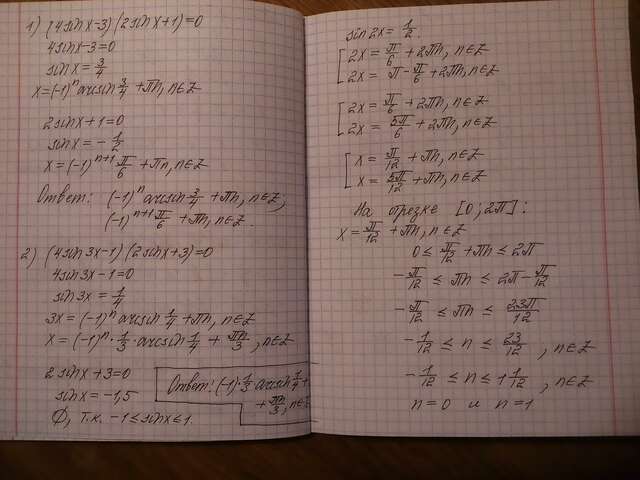 1) (4sinx-3)(2sinx+1)=0
4sinx-3=0
sinx= 3/4
x=(-1)ⁿ arcsin 3/4 +πn, n∈Z
2sinx+1=0
sinx= -1/2
x=(-1)ⁿ⁺¹ π/6 +πn, n∈Z
Ответ: (-1)ⁿ arcsin 3/4 +πn, n∈Z;
(-1)ⁿ⁺¹ π/6 +πn, n∈Z.
2) (4sin3x-1)(2sinx+3)=0
4sin3x-1=0
sin3x= 1/4
3x=(-1)ⁿ arcsin 1/4 +πn, n∈Z
x=(-1)ⁿ·1/3·arcsin 1/4 + πn/3, n∈Z
2sinx+3=0
sinx=-1,5
∅, т.к. -1≤sinx≤1.
Ответ: (-1)·1/3 arcsin 1/4 +
+ πn/3, n∈
sin2x= 1/2.
[2x= π/6 +2πn, n∈Z
2x= π-π/6 +2πn, n∈Z
[2x= π/6 +2πn, n∈Z
2x= 5π/6 +2πn, n∈Z
[x= π/12 +πn, n∈Z
x= 5π/12 +πn, n∈Z
На отрезке [0; 2π]:
x= π/12 +πn, n∈Z
0≤ π/12 +πn ≤2π
-π/12 ≤ πn ≤ 2π-π/12
-π/12 ≤ πn ≤ 23π/12
-1/12 ≤ n ≤ 23/12, n∈Z
-1/12 ≤ n ≤ 1 11/12, n∈Z
n=0 и n=1